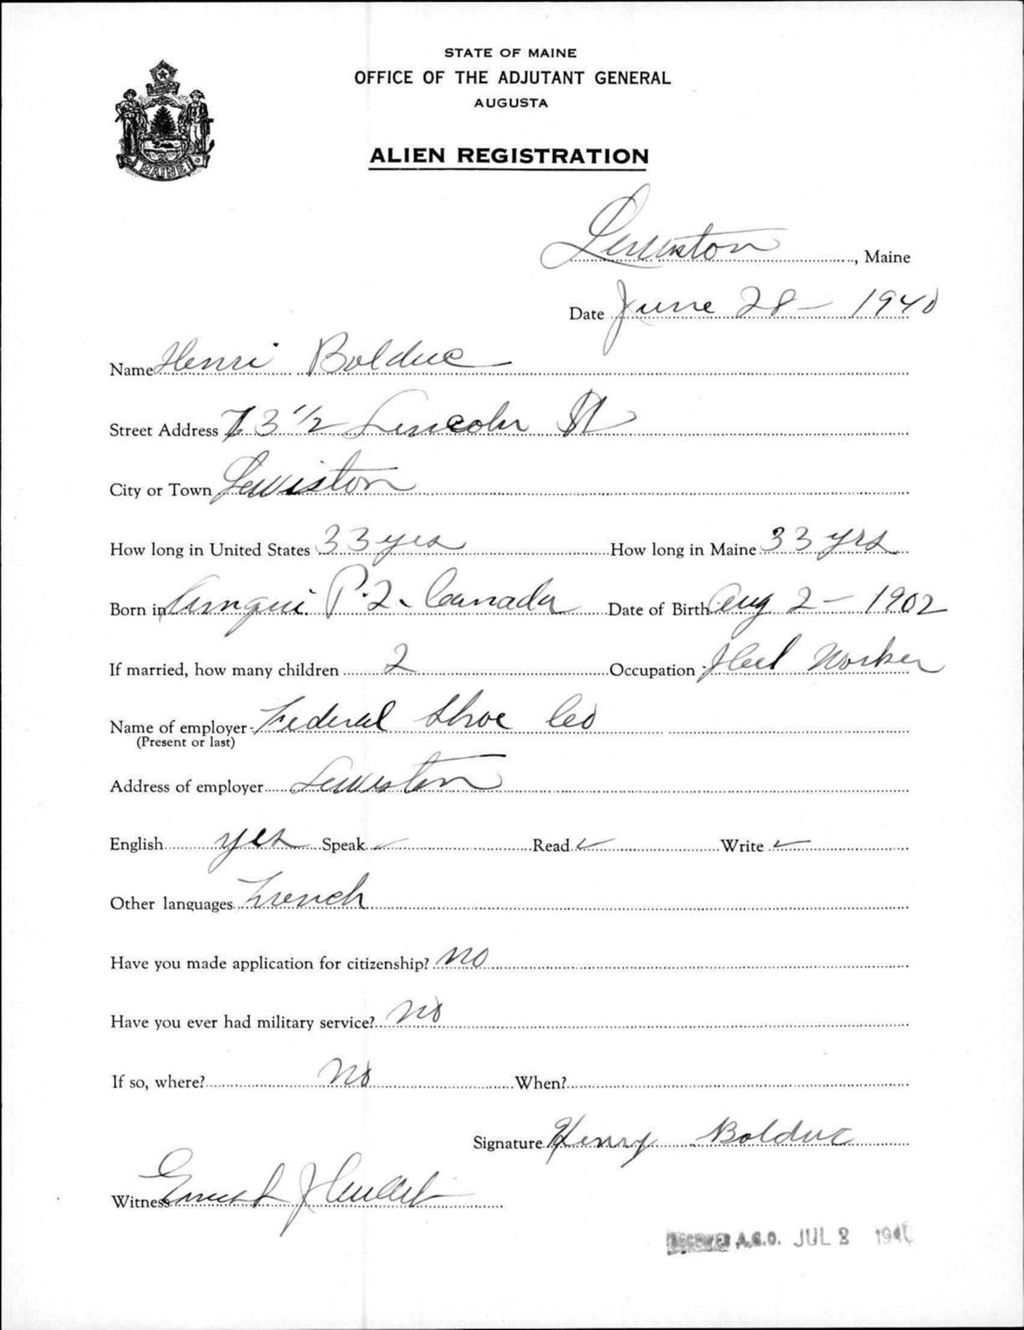 STATE OF MAINE
OFFICE OF THE ADJUTANT GENERAL
AUGUSTA
MAINE
ALIEN REGISTRATION
Lewiston, Maine
Date June 28 - 1940
Name Henri Bolduc
Street Address 73 1/2 Lincoln St
City or Town Lewiston
How long in United States 33 yrs How long in Maine 33 yrs
Born in Amqui P.Q. Canada Date of Birth Aug 2 - 1902
If married, how many children 2 Occupation Heel Worker
Name of employer Federal Shoe Co
(Present or last)
Address of employer Lewiston
English yes Speak ✓ Read ✓ Write ✓
Other languages French
Have you made application for citizenship? No
Have you ever had military service? No
If so, where? No When?
Signature Henry Bolduc
Witness Ernest J
RECEIVED A.G.O. JUL 2 1940